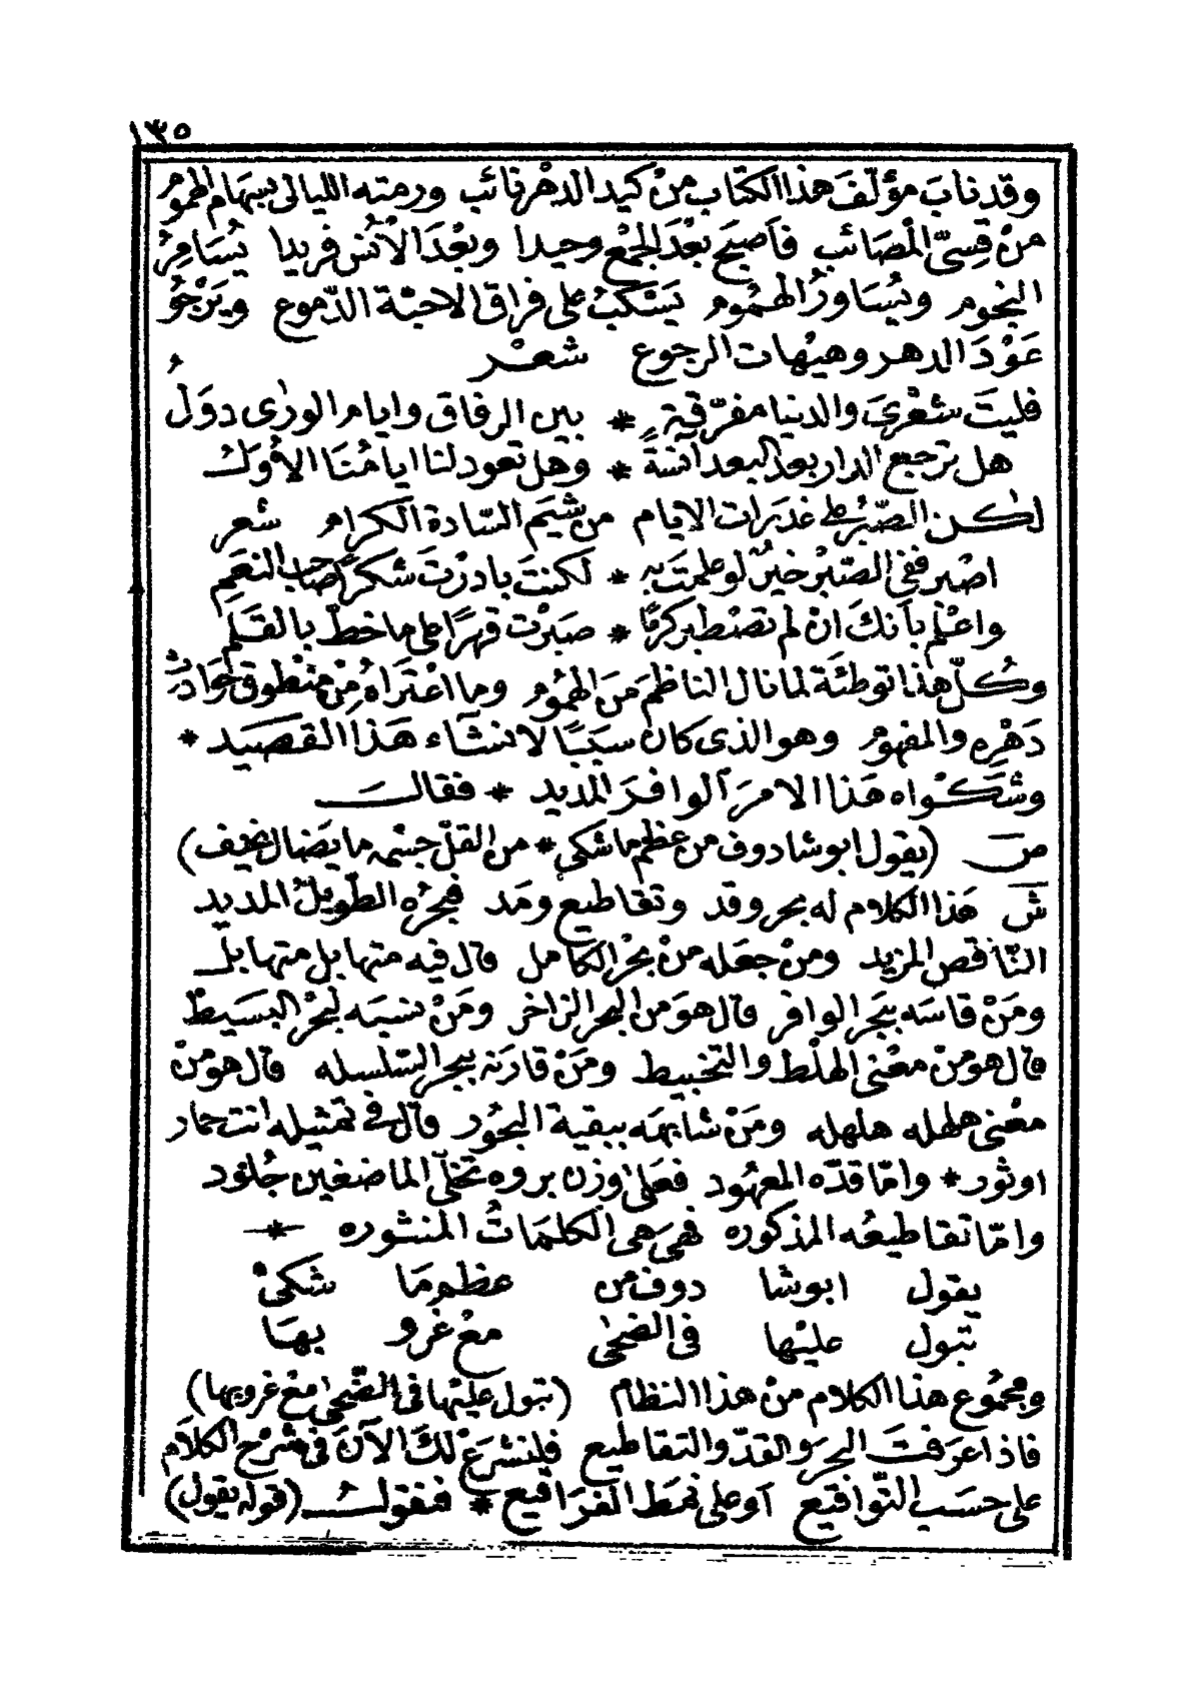 ١٣٥
وقد نابَ مؤلّفَ هذا الكتاب مِنْ كيد الدهْر نائب ورمته الليالى بسهام الهموم
مِنْ قِسىّ المْصَائب فأصبَح بعْدَ الجمْع وحيدا وبعْدَ الأُنْس فريدا يُسَامِرُ
النجوم ويُسَاورُ الهمُوم يَسْكبُ على فراق الاحبّة الدّموع ويَرْجُو
عَوْدَ الدهر وهيْهات الرجوع شعْر
فليتَ شعْرىَ والدنيا مفرّقة * بين الرفاق وايام الورٰى دوَلُ
هل ترجع الدار بعد البعد آنسةً * وهل تعود لنا ايامُنَا الأُوَلُ
لكن الصّبْرُ على غدَرات الايام من شِيَم السّادة الكرام شعر
اصْبر ففى الصّبْر خيْرٌ لو علمتَ به * لكنتَ بادرْتَ شكرًا صاحب النعَمِ
واعْلم بأنكَ انْ لم تصْطبر كرمًا * صبَرْتَ قهرًا على ما خطّ بالقَلَمِ
وكُلّ هذا توطئَة لما نال الناظمَ مَن الهمُوم وما اعْتَراهُ مِنْ منْطوق حَوَادثِ
دَهْرِه والمفهوم وهو الذى كان سبَبًا لانشَآء هَذا القصَيد *
وشكْواه هَذا الامرَ الوافرَ المديد * فقالَ
صَ (يقول ابو شادوف من عظم ما شكى * من القلّ جسْمه ما يَضال نحيف)
شَ هَذا الكلام له بحر وقد وتقاطيع ومَد فبحرُه الطّويلُ المديد
النّاقص المزيد ومنْ جعَله منْ بحْر الكامل قال فيه متهابل متهابل
ومَنْ قاسَه ببَحر الوافر قال هوَ من البحر الزاخر ومَنْ نسَبَه لبحْر البَسيط
قال هوَ منْ معْنى الهلْط والتخبيط ومَنْ قارَنه ببحر السّلسله قال هوَ منْ
معْنى هطله هلهله ومَنْ شابهَه ببقية البحُور قال فى تمثيله انت حمار
او ثور * وامّا قدّه المعهُود فعَلى وزن بروه تخلّى الماضغين جُلود
وامّا تقاطيعُه المذكوره فهىَ هى الكلمَاتُ المنثوره *
يقول ابو شا دوف من عظم مَا شكىْ
تبول عليْها فى الضحٰى معْ غرو بهَا
ومجمُوع هذا الكلام منْ هذا النظام (تبول عليْها فى الضّحى معْ غروبها)
فاذا عرَفتَ البحرَ والقدّ والتقاطيع فلنشرَعْ لكَ الآنَ فى شرْح الكلاَم
على حسَب التّواقيع أو على نمَط الفرَاقيع * فنقولُ (قوله يقول)